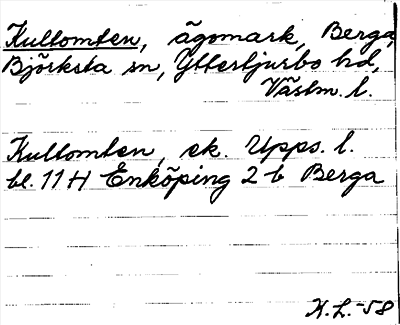 Kultomten, ägomark, Berga,
Björksta sn, Yttertjurbo hd,
Västm. l.
Kultomten, ek. Upps. l.
bl. 11 H Enköping 2 b Berga
K.L.-58